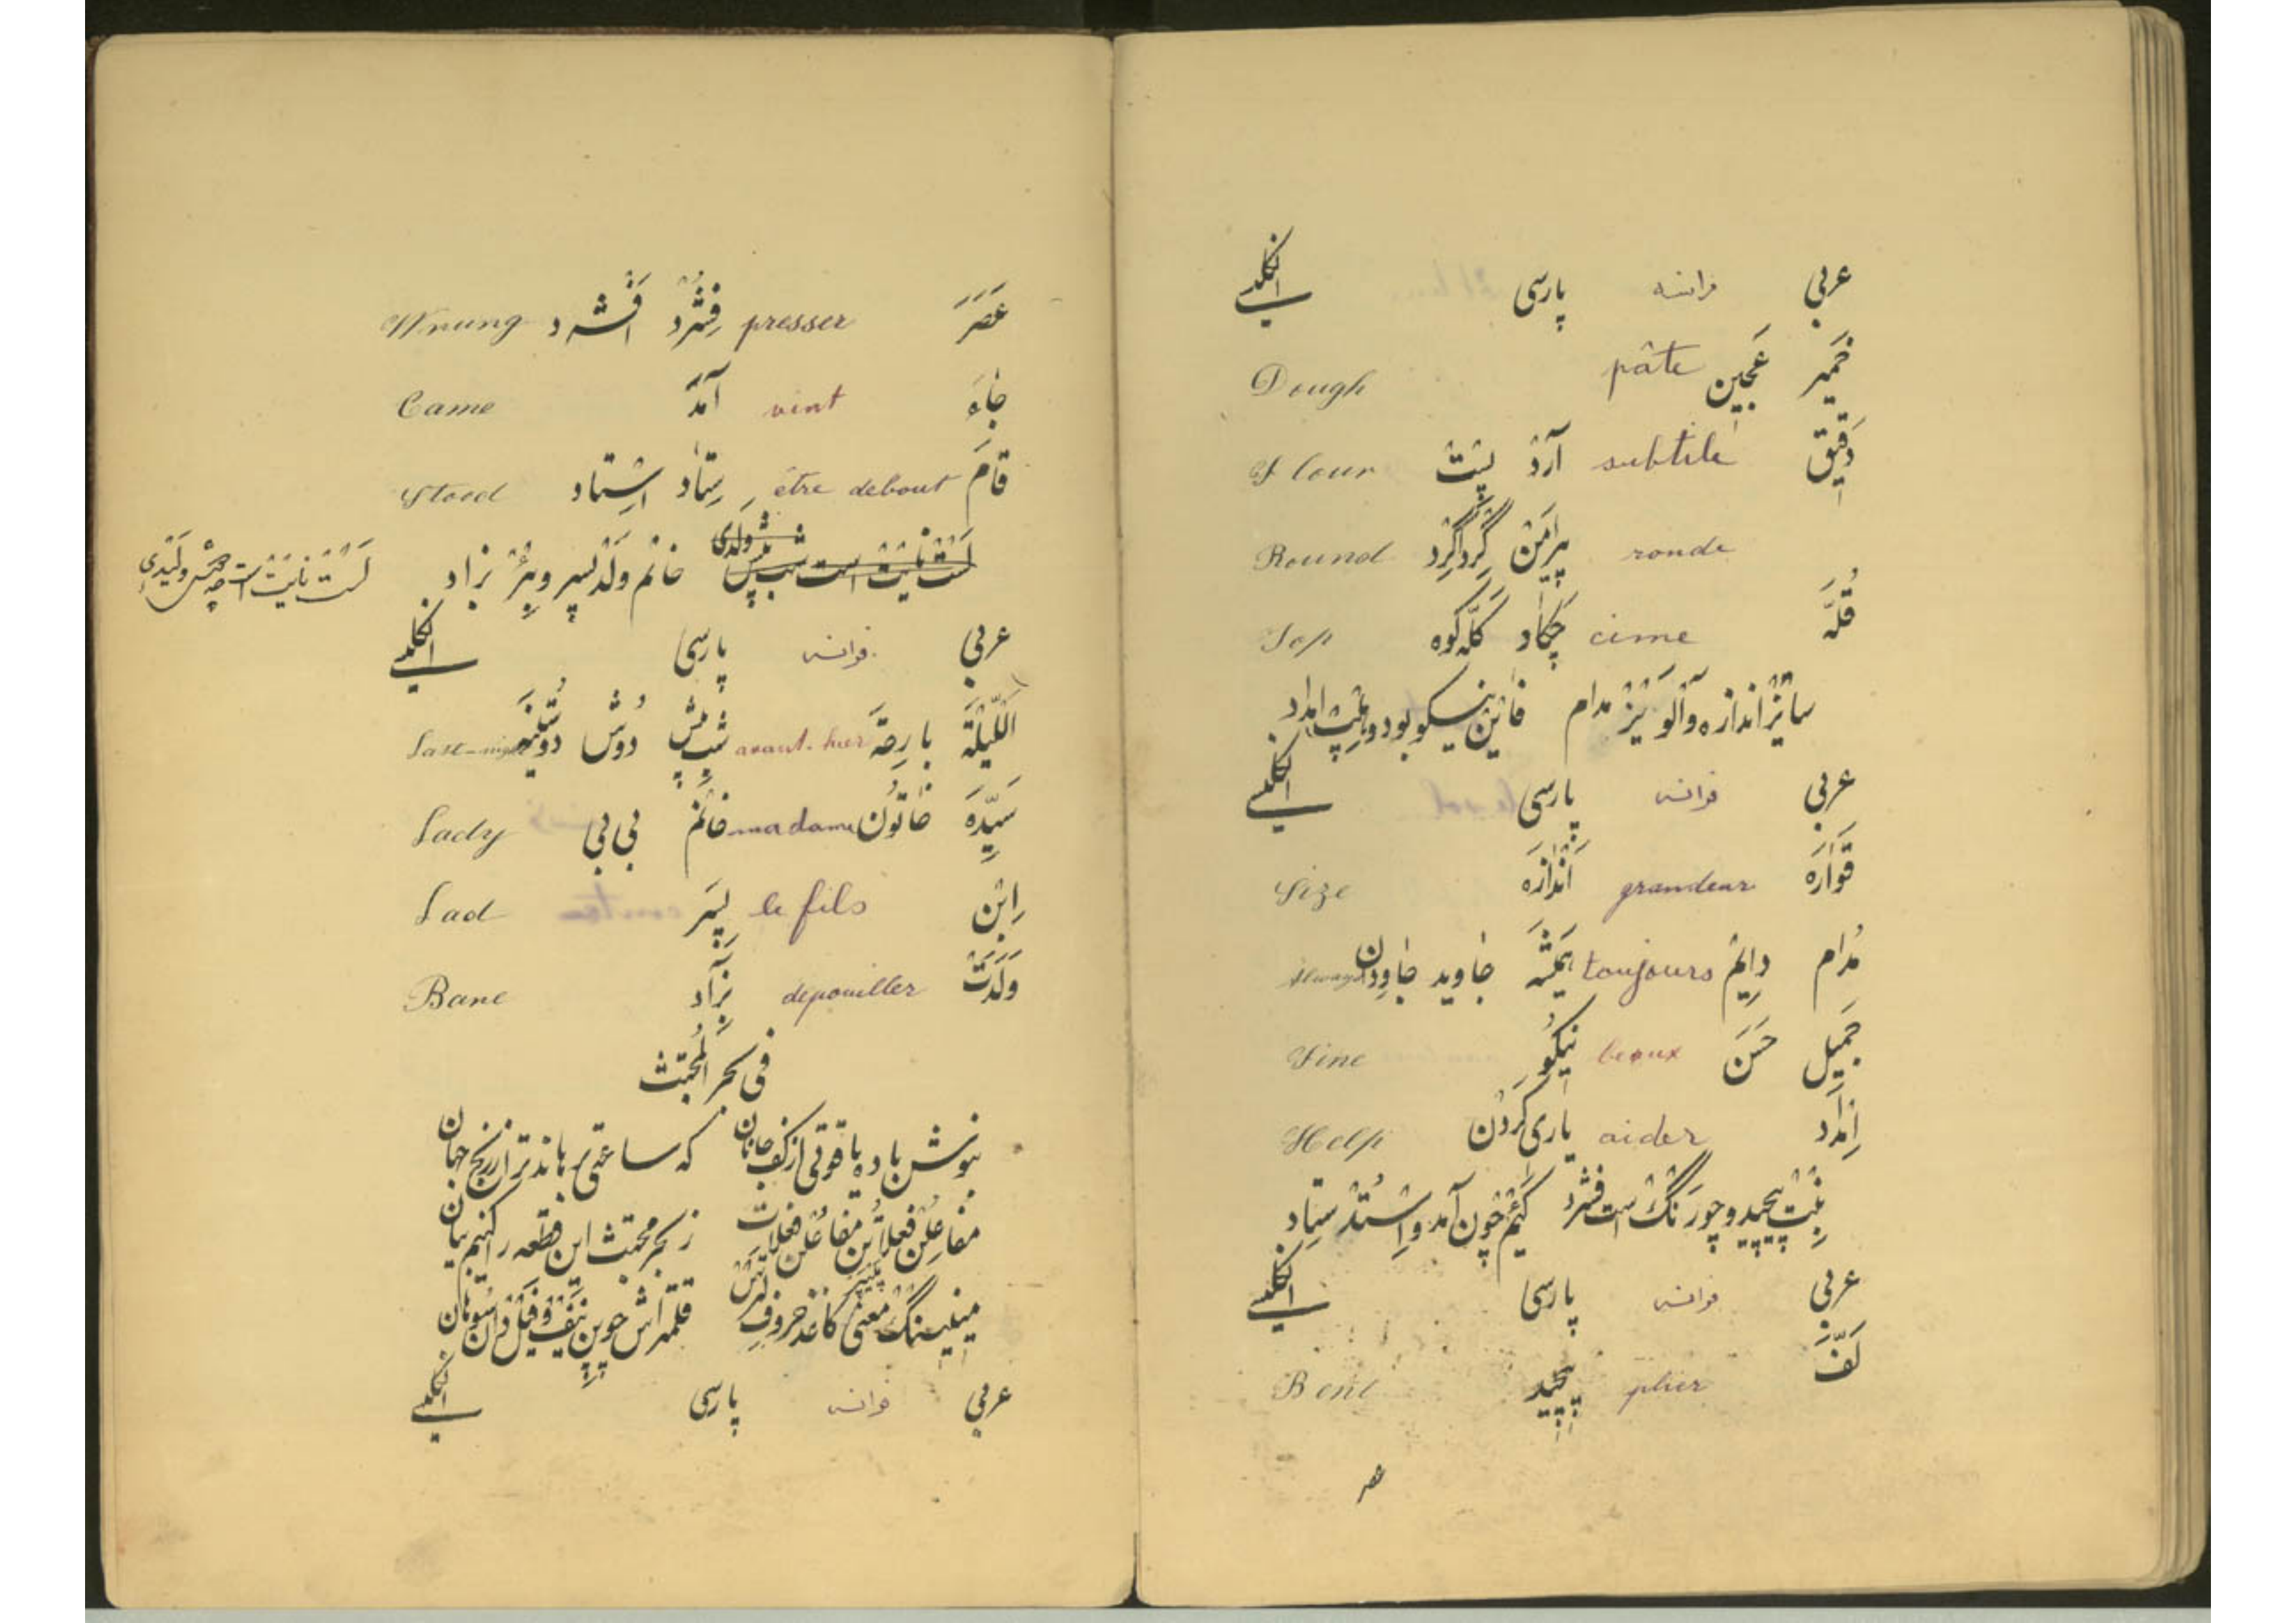 عربی فرانسه پارسی انگلیسی
خَمیر عَجین pâte Dough
دَقیق subtile آرد پِست Flour
ronde پیرامَن گِرداگِرد Round
قُلَّه cime چَکاد کَلّه کوه Top
سایْزْ اندازه و آلْوَیْزْ مدام فاینْ نیکو بود و هلپْ امداد
عربی فرانسه پارسی انگلیسی
قَوارَه grandeur اَنْدازَه Size
مُدام دایِمْ toujours هَمیشَه جاوید جاودان Always
جَمیل حَسَن beaux نیکُو Fine
اِمْداد aider یاری کَردن Help
بِنْتْ پیچید و چو رَنگْ است فشرد کَیْمْ چون آمد و اِسْتُدْ ستاد
عربی فرانسه پارسی انگلیسی
لَفَّ plier پیچید Bent
عصر
عَصَرَ presser فِشُرْد اَفْشرد Wrung
جاءَ vint آمَد Came
قامَ être debout سِتاد اِستاد Stood
لَسْتْ نایتْ است شب پیش وَلَدی خانم وَلَدْ پسر و بِرْ بزاد
عربی فرانسه پارسی انگلیسی
اَللَّیْلَة بارِحَة avant-hier شب پیش دُوش دوشینَه Last-night
سَیِّدَه خاتُون madame خانُم بی بی Lady
اِبْن le fils پسَر Lad
وَلَدَتْ dépouiller بِزاد Bane
فی بحر المُجتث
بنوش باده یاقوتی از کف جانان که ساعتی برهاند ترا ز رنج جهان
مفاعِلُن فَعِلاتُن مفاعِلُن فعلات ز بحر مجتث این قطعه را کنیم بیان
عربی فرانسه پارسی انگلیسی